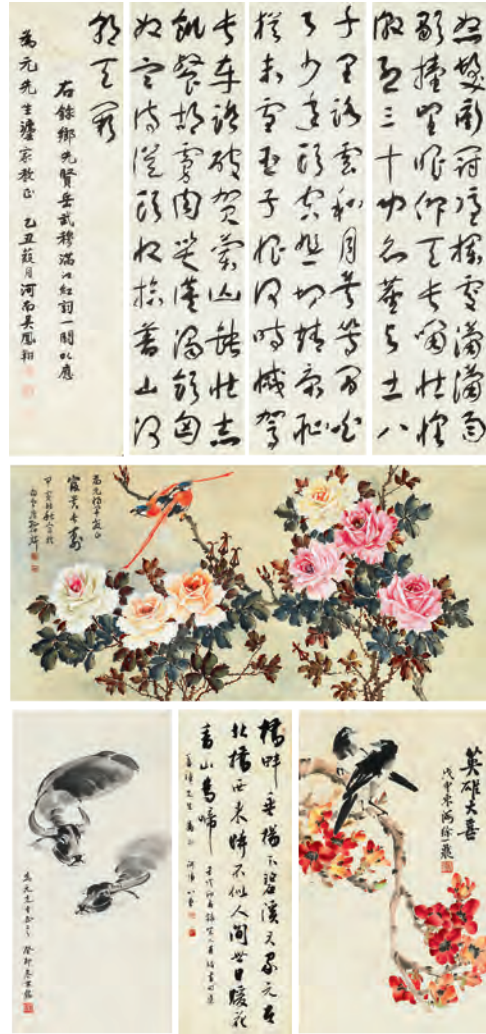 怒髮衝冠憑欄處瀟瀟雨
歇擡望眼仰天長嘯壯懷
激烈三十功名塵與土八
千里路雲和月莫等閒白
了少年頭空悲切靖康恥
猶未雪臣子恨何時滅駕
長車踏破賀蘭山缺壯志
飢餐胡虜肉笑談渴飲匈
奴血待從頭收拾舊山河
朝天闕
右錄鄉先賢岳武穆滿江紅詞一闋以應
為元先生鑒家教正 乙丑葭月河南吳鳳翔
富貴長壽
橋畔垂楊下碧溪君家元在
北橋西來時不似人間世日暖花
香山鳥啼
英雄大喜
戊申東海徐一飛
為元先生
癸卯冬